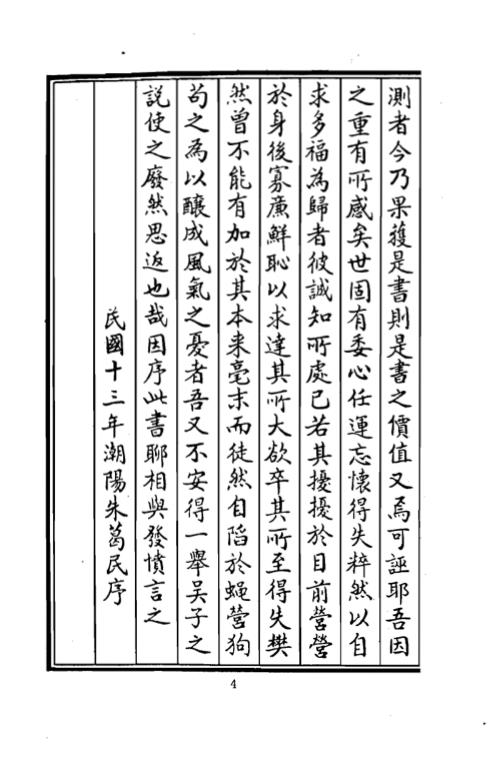 測者今乃果獲是書則是書之價值又焉可誣耶吾因
之重有所感矣世固有委心任運忘懷得失粹然以自
求多福為歸者彼誠知所處已若其擾擾於目前營營
於身後寡廉鮮恥以求達其所大欲卒其所至得失樊
然曾不能有加於其本来毫末而徒然自陷於蝇營狗
茍之為以釀成風氣之憂者吾又不安得一舉吴子之
說使之廢然思返也哉因序此書聊相與發憤言之
民國十三年潮陽朱葛民序
4